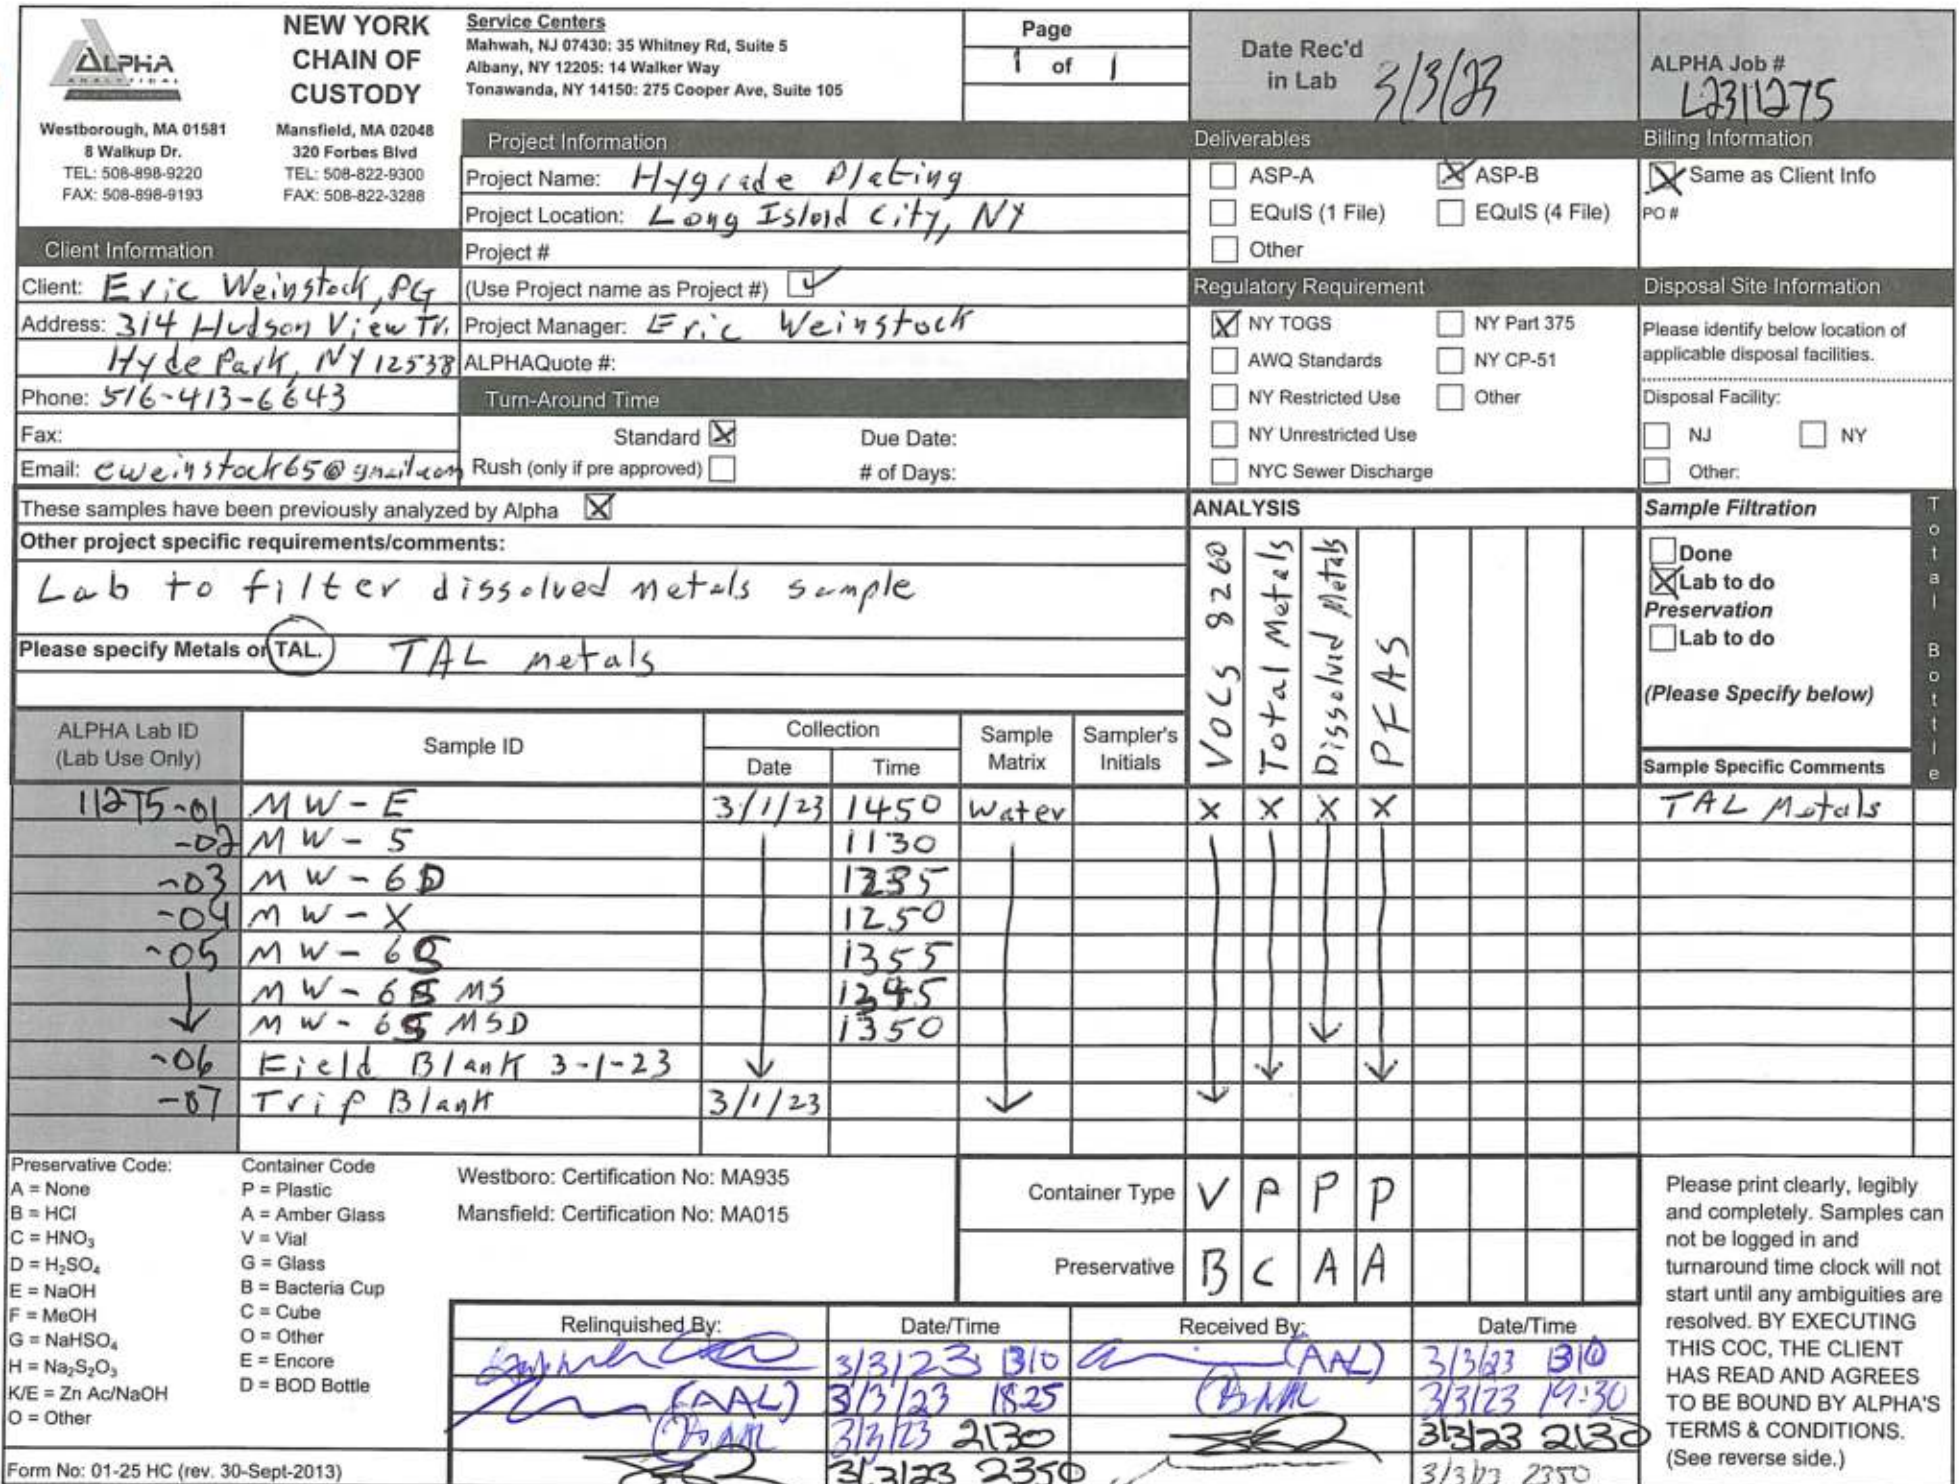 ALPHA
ANALYTICAL
Westborough, MA 01581
8 Walkup Dr.
TEL: 508-898-9220
FAX: 508-898-9193
NEW YORK
CHAIN OF
CUSTODY
Mansfield, MA 02048
320 Forbes Blvd
TEL: 508-822-9300
FAX: 508-822-3288
Service Centers
Mahwah, NJ 07430: 35 Whitney Rd, Suite 5
Albany, NY 12205: 14 Walker Way
Tonawanda, NY 14150: 275 Cooper Ave, Suite 105
Page
1 of 1
Date Rec'd
in Lab 3/3/23
ALPHA Job #
L2311275
Project Information
Project Name: Hygrade Plating
Project Location: Long Island City, NY
Project #
(Use Project name as Project #) ✓
Project Manager: Eric Weinstock
ALPHAQuote #:
Client Information
Client: Eric Weinstock, PG
Address: 314 Hudson View Tr.
Hyde Park, NY 12538
Phone: 516-413-6643
Fax:
Email: eweinstock65@gmail.com
Turn-Around Time
Standard X Due Date:
Rush (only if pre approved) # of Days:
Deliverables
ASP-A X ASP-B
EQuIS (1 File) EQuIS (4 File)
Other
Regulatory Requirement
X NY TOGS NY Part 375
AWQ Standards NY CP-51
NY Restricted Use Other
NY Unrestricted Use
NYC Sewer Discharge
Billing Information
X Same as Client Info
PO #
Disposal Site Information
Please identify below location of
applicable disposal facilities.
Disposal Facility:
NJ NY
Other:
These samples have been previously analyzed by Alpha X
Other project specific requirements/comments:
Lab to filter dissolved metals sample
Please specify Metals or TAL. TAL metals
ANALYSIS
VOCs 8260
Total Metals
Dissolved Metals
PFAS
Sample Filtration
Done
X Lab to do
Preservation
Lab to do
(Please Specify below)
Sample Specific Comments
Total Bottle
ALPHA Lab ID
(Lab Use Only)
Sample ID
Collection
Date Time
Sample
Matrix
Sampler's
Initials
11275-01 MW-E 3/1/23 1450 Water X X X X TAL Metals
-02 MW-5 1130
-03 MW-6D 1235
-04 MW-X 1250
-05 MW-6S 1355
MW-6S MS 1245
MW-6S MSD 1350
-06 Field Blank 3-1-23
-07 Trip Blank 3/1/23
Preservative Code:
A = None
B = HCl
C = HNO₃
D = H₂SO₄
E = NaOH
F = MeOH
G = NaHSO₄
H = Na₂S₂O₃
K/E = Zn Ac/NaOH
O = Other
Container Code
P = Plastic
A = Amber Glass
V = Vial
G = Glass
B = Bacteria Cup
C = Cube
O = Other
E = Encore
D = BOD Bottle
Westboro: Certification No: MA935
Mansfield: Certification No: MA015
Container Type V P P P
Preservative B C A A
Relinquished By: Date/Time Received By: Date/Time
3/3/23 1310 (AAL) 3/3/23 1310
(AAL) 3/3/23 1825 3/3/23 19:30
3/3/23 2130 3/3/23 2130
3/3/23 2350 3/3/23 2350
Please print clearly, legibly
and completely. Samples can
not be logged in and
turnaround time clock will not
start until any ambiguities are
resolved. BY EXECUTING
THIS COC, THE CLIENT
HAS READ AND AGREES
TO BE BOUND BY ALPHA'S
TERMS & CONDITIONS.
(See reverse side.)
Form No: 01-25 HC (rev. 30-Sept-2013)